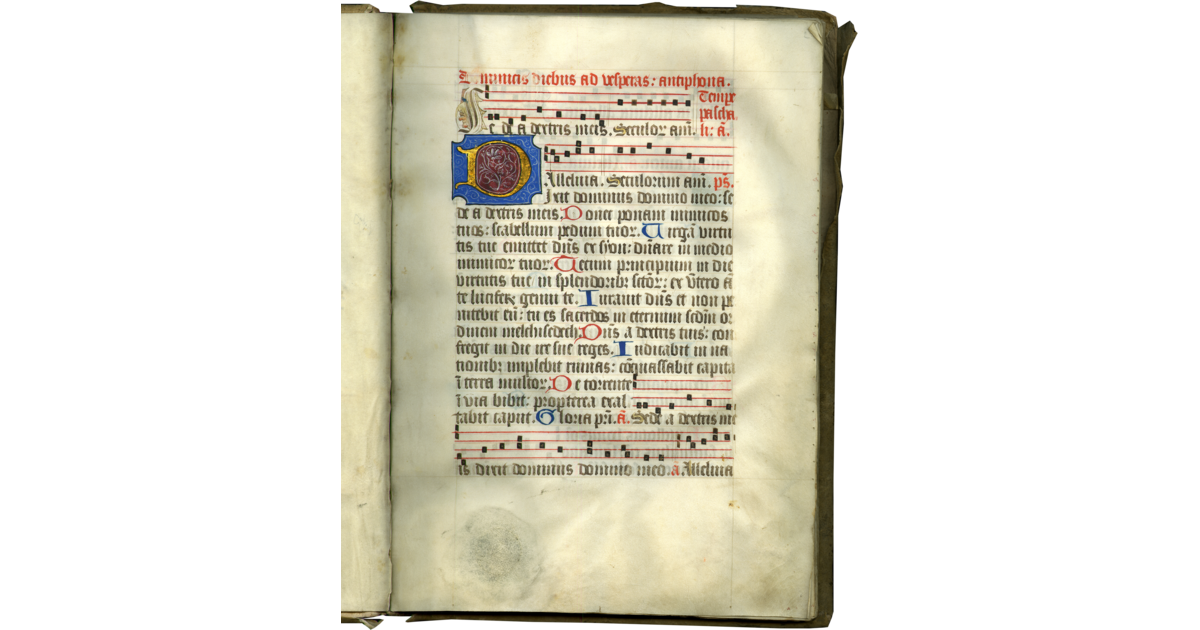 Dominicis diebus ad vesperas: antiphona.
Tempe
pascha
Se de a dextris meis. Seculor am̄. h: ā.
Alleluia. Seculorum am̄. ps̄.
Dixit dominus domino meo: se
de a dextris meis. Donec ponam inimicos
tuos: scabellum pedum tuor. Uirgā virtu
tis tue emittet dn̄s ex syon: dn̄are in medio
inimicor tuor. Tecum principium in die
virtutis tue in splendoribꝫ sctōr: ex v̄tero ā
te lucifeꝝ genui te. Iurauit dn̄s et non pe
nitebit eū: tu es sacerdos in eternum scdm̄ or
dinem melchisedech. Dn̄s a dextris tuis: con
fregit in die ire sue reges. Iudicabit in na
tionibꝫ implebit ruinas: cōquassabit capita
ī terra multor. De torrente
ī via bibit: propterea exal
tabit caput. Gloria pr̄i. ā. Sede a dextris me
is dixit dominus domino meo. ā. Alleluia